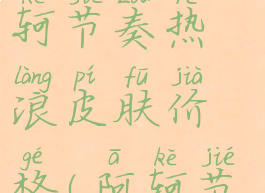 kē jié zòu rè
轲节奏热
làng pí fū jià
浪皮肤价
gé ā kē jié
格(阿轲节